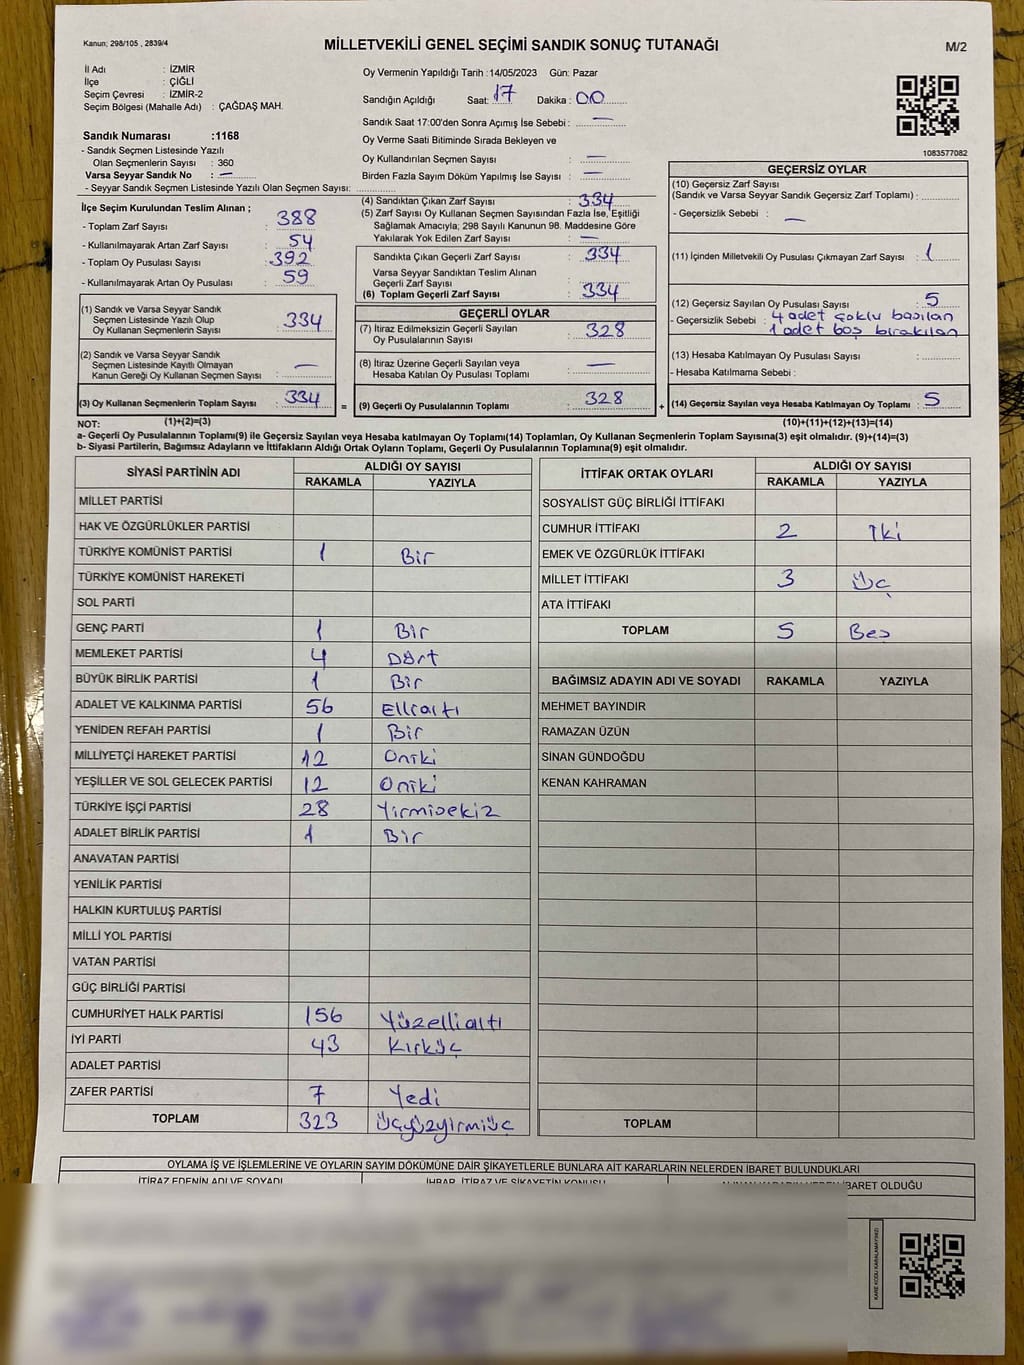 Kanun; 298/105 , 2839/4
MİLLETVEKİLİ GENEL SEÇİMİ SANDIK SONUÇ TUTANAĞI
M/2
İl Adı : İZMİR
İlçe : ÇİĞLİ
Seçim Çevresi : İZMİR-2
Seçim Bölgesi (Mahalle Adı) : ÇAĞDAŞ MAH.
Sandık Numarası :1168
- Sandık Seçmen Listesinde Yazılı
Olan Seçmenlerin Sayısı : 360
Varsa Seyyar Sandık No : —
- Seyyar Sandık Seçmen Listesinde Yazılı Olan Seçmen Sayısı:
Oy Vermenin Yapıldığı Tarih :14/05/2023 Gün: Pazar
Sandığın Açıldığı Saat: 17 Dakika : 00
Sandık Saat 17:00'den Sonra Açımış İse Sebebi : —
Oy Verme Saati Bitiminde Sırada Bekleyen ve
Oy Kullandırılan Seçmen Sayısı : —
Birden Fazla Sayım Döküm Yapılmış İse Sayısı : —
1083577082
İlçe Seçim Kurulundan Teslim Alınan ;
- Toplam Zarf Sayısı : 388
- Kullanılmayarak Artan Zarf Sayısı : 54
- Toplam Oy Pusulası Sayısı : 392
- Kullanılmayarak Artan Oy Pusulası : 59
(1) Sandık ve Varsa Seyyar Sandık
Seçmen Listesinde Yazılı Olup
Oy Kullanan Seçmenlerin Sayısı : 334
(2) Sandık ve Varsa Seyyar Sandık
Seçmen Listesinde Kayıtlı Olmayan
Kanun Gereği Oy Kullanan Seçmen Sayısı : —
(3) Oy Kullanan Seçmenlerin Toplam Sayısı : 334
(4) Sandıktan Çıkan Zarf Sayısı : 334
(5) Zarf Sayısı Oy Kullanan Seçmen Sayısından Fazla İse, Eşitliği
Sağlamak Amacıyla; 298 Sayılı Kanunun 98. Maddesine Göre
Yakılarak Yok Edilen Zarf Sayısı : —
Sandıkta Çıkan Geçerli Zarf Sayısı : 334
Varsa Seyyar Sandıktan Teslim Alınan
Geçerli Zarf Sayısı :
(6) Toplam Geçerli Zarf Sayısı : 334
GEÇERLİ OYLAR
(7) İtiraz Edilmeksizin Geçerli Sayılan
Oy Pusulalarının Sayısı : 328
(8) İtiraz Üzerine Geçerli Sayılan veya
Hesaba Katılan Oy Pusulası Toplamı : —
= (9) Geçerli Oy Pusulalarının Toplamı : 328
GEÇERSİZ OYLAR
(10) Geçersiz Zarf Sayısı
(Sandık ve Varsa Seyyar Sandık Geçersiz Zarf Toplamı) :
- Geçersizlik Sebebi : —
(11) İçinden Milletvekili Oy Pusulası Çıkmayan Zarf Sayısı : 1
(12) Geçersiz Sayılan Oy Pusulası Sayısı : 5
- Geçersizlik Sebebi : 4 adet çoklu basılan
1 adet boş bırakılan
(13) Hesaba Katılmayan Oy Pusulası Sayısı :
- Hesaba Katılmama Sebebi :
+ (14) Geçersiz Sayılan veya Hesaba Katılmayan Oy Toplamı : 5
NOT: (1)+(2)=(3) (10)+(11)+(12)+(13)=(14)
a- Geçerli Oy Pusulalarının Toplamı(9) ile Geçersiz Sayılan veya Hesaba katılmayan Oy Toplamı(14) Toplamları, Oy Kullanan Seçmenlerin Toplam Sayısına(3) eşit olmalıdır. (9)+(14)=(3)
b- Siyasi Partilerin, Bağımsız Adayların ve İttifakların Aldığı Ortak Oyların Toplamı, Geçerli Oy Pusulalarının Toplamına(9) eşit olmalıdır.
SİYASİ PARTİNİN ADI ALDIĞI OY SAYISI
RAKAMLA YAZIYLA
MİLLET PARTİSİ
HAK VE ÖZGÜRLÜKLER PARTİSİ
TÜRKİYE KOMÜNİST PARTİSİ 1 Bir
TÜRKİYE KOMÜNİST HAREKETİ
SOL PARTİ
GENÇ PARTİ 1 Bir
MEMLEKET PARTİSİ 4 Dört
BÜYÜK BİRLİK PARTİSİ 1 Bir
ADALET VE KALKINMA PARTİSİ 56 Ellialtı
YENİDEN REFAH PARTİSİ 1 Bir
MİLLİYETÇİ HAREKET PARTİSİ 12 Oniki
YEŞİLLER VE SOL GELECEK PARTİSİ 12 Oniki
TÜRKİYE İŞÇİ PARTİSİ 28 Yirmisekiz
ADALET BİRLİK PARTİSİ 1 Bir
ANAVATAN PARTİSİ
YENİLİK PARTİSİ
HALKIN KURTULUŞ PARTİSİ
MİLLİ YOL PARTİSİ
VATAN PARTİSİ
GÜÇ BİRLİĞİ PARTİSİ
CUMHURİYET HALK PARTİSİ 156 Yüzellialtı
İYİ PARTİ 43 Kırküç
ADALET PARTİSİ
ZAFER PARTİSİ 7 Yedi
TOPLAM 323 Üçyüzyirmiüç
İTTİFAK ORTAK OYLARI ALDIĞI OY SAYISI
RAKAMLA YAZIYLA
SOSYALİST GÜÇ BİRLİĞİ İTTİFAKI
CUMHUR İTTİFAKI 2 İki
EMEK VE ÖZGÜRLÜK İTTİFAKI
MİLLET İTTİFAKI 3 Üç
ATA İTTİFAKI
TOPLAM 5 Beş
BAĞIMSIZ ADAYIN ADI VE SOYADI RAKAMLA YAZIYLA
MEHMET BAYINDIR
RAMAZAN ÜZÜN
SİNAN GÜNDOĞDU
KENAN KAHRAMAN
TOPLAM
OYLAMA İŞ VE İŞLEMLERİNE VE OYLARIN SAYIM DÖKÜMÜNE DAİR ŞİKAYETLERLE BUNLARA AİT KARARLARIN NELERDEN İBARET BULUNDUKLARI
İTİRAZ EDENİN ADI VE SOYADI İHBAR, İTİRAZ VE ŞİKAYETİN KONUSU ALINAN KARARIN NEDEN İBARET OLDUĞU
KARE KODU KARALAMAYINIZ!